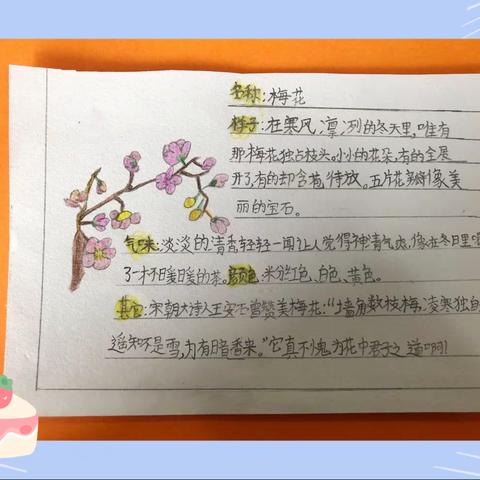 名称:梅花
样子:在寒风凛冽的冬天里,唯有
那梅花独占枝头。小小的花朵,有的全展
开了,有的却含苞待放。五片花瓣像美
丽的宝石。
气味:淡淡的清香,轻轻一闻让人觉得神清气爽,像在冬日里喝
了一杯暖暖的茶。颜色:粉红色、白色、黄色。
其它:宋朝大诗人王安石曾赞美梅花:“墙角数枝梅,凌寒独自
遥知不是雪,为有暗香来。”它真不愧为花中君子之